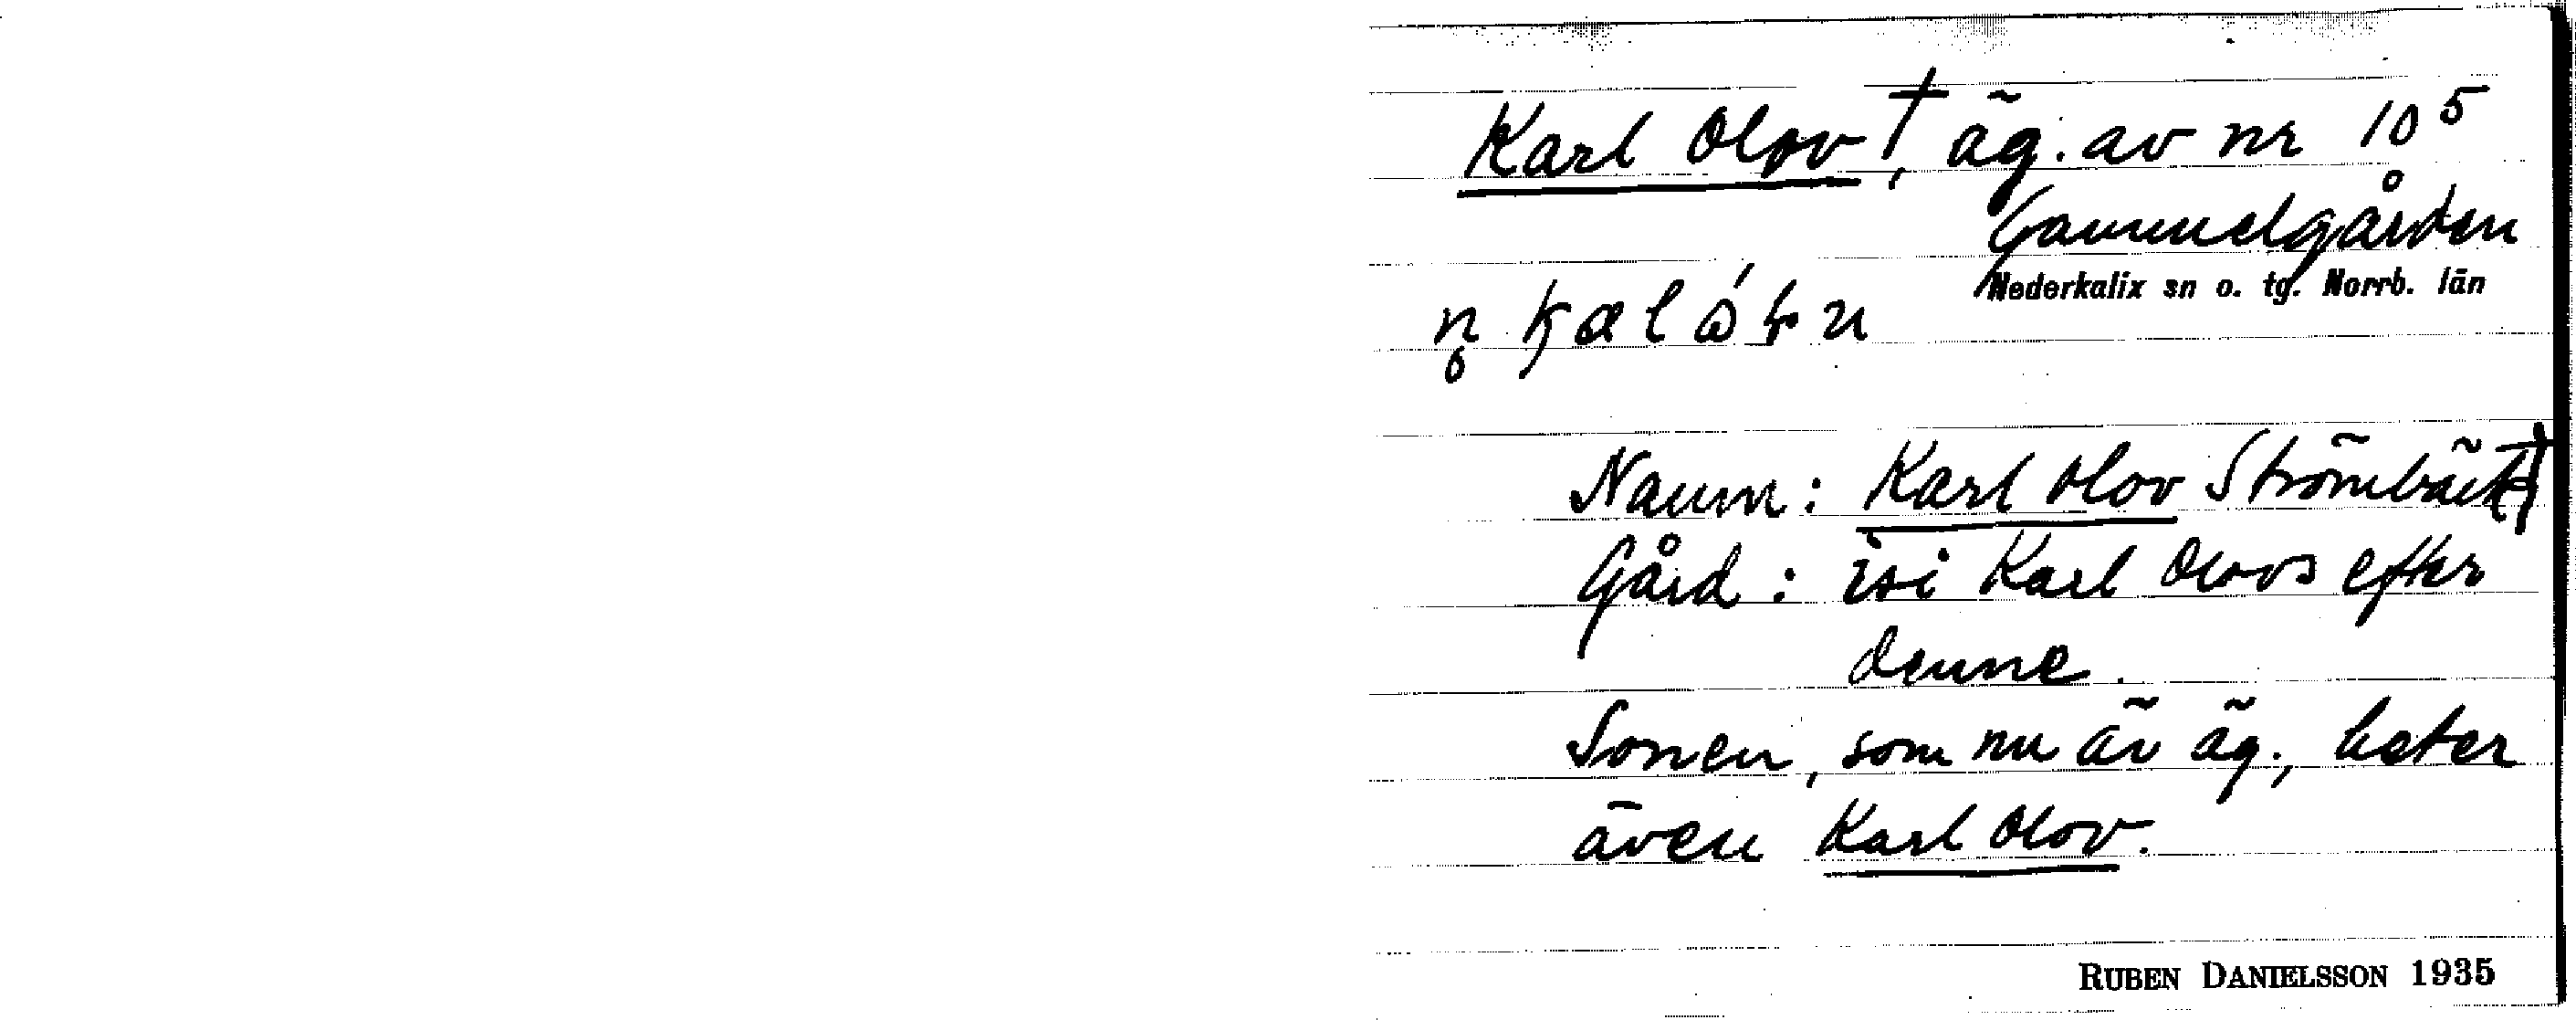 Karl Olov†, äg. av nr 10⁵
Gammelgården
Nederkalix sn o. tg. Norrb. län
Namn: Karl Olov Strömbäck†
Gård: isi Karl Olovs efter
denne.
Sonen, som nu är äg., heter
även Karl Olov.
RUBEN DANIELSSON 1935